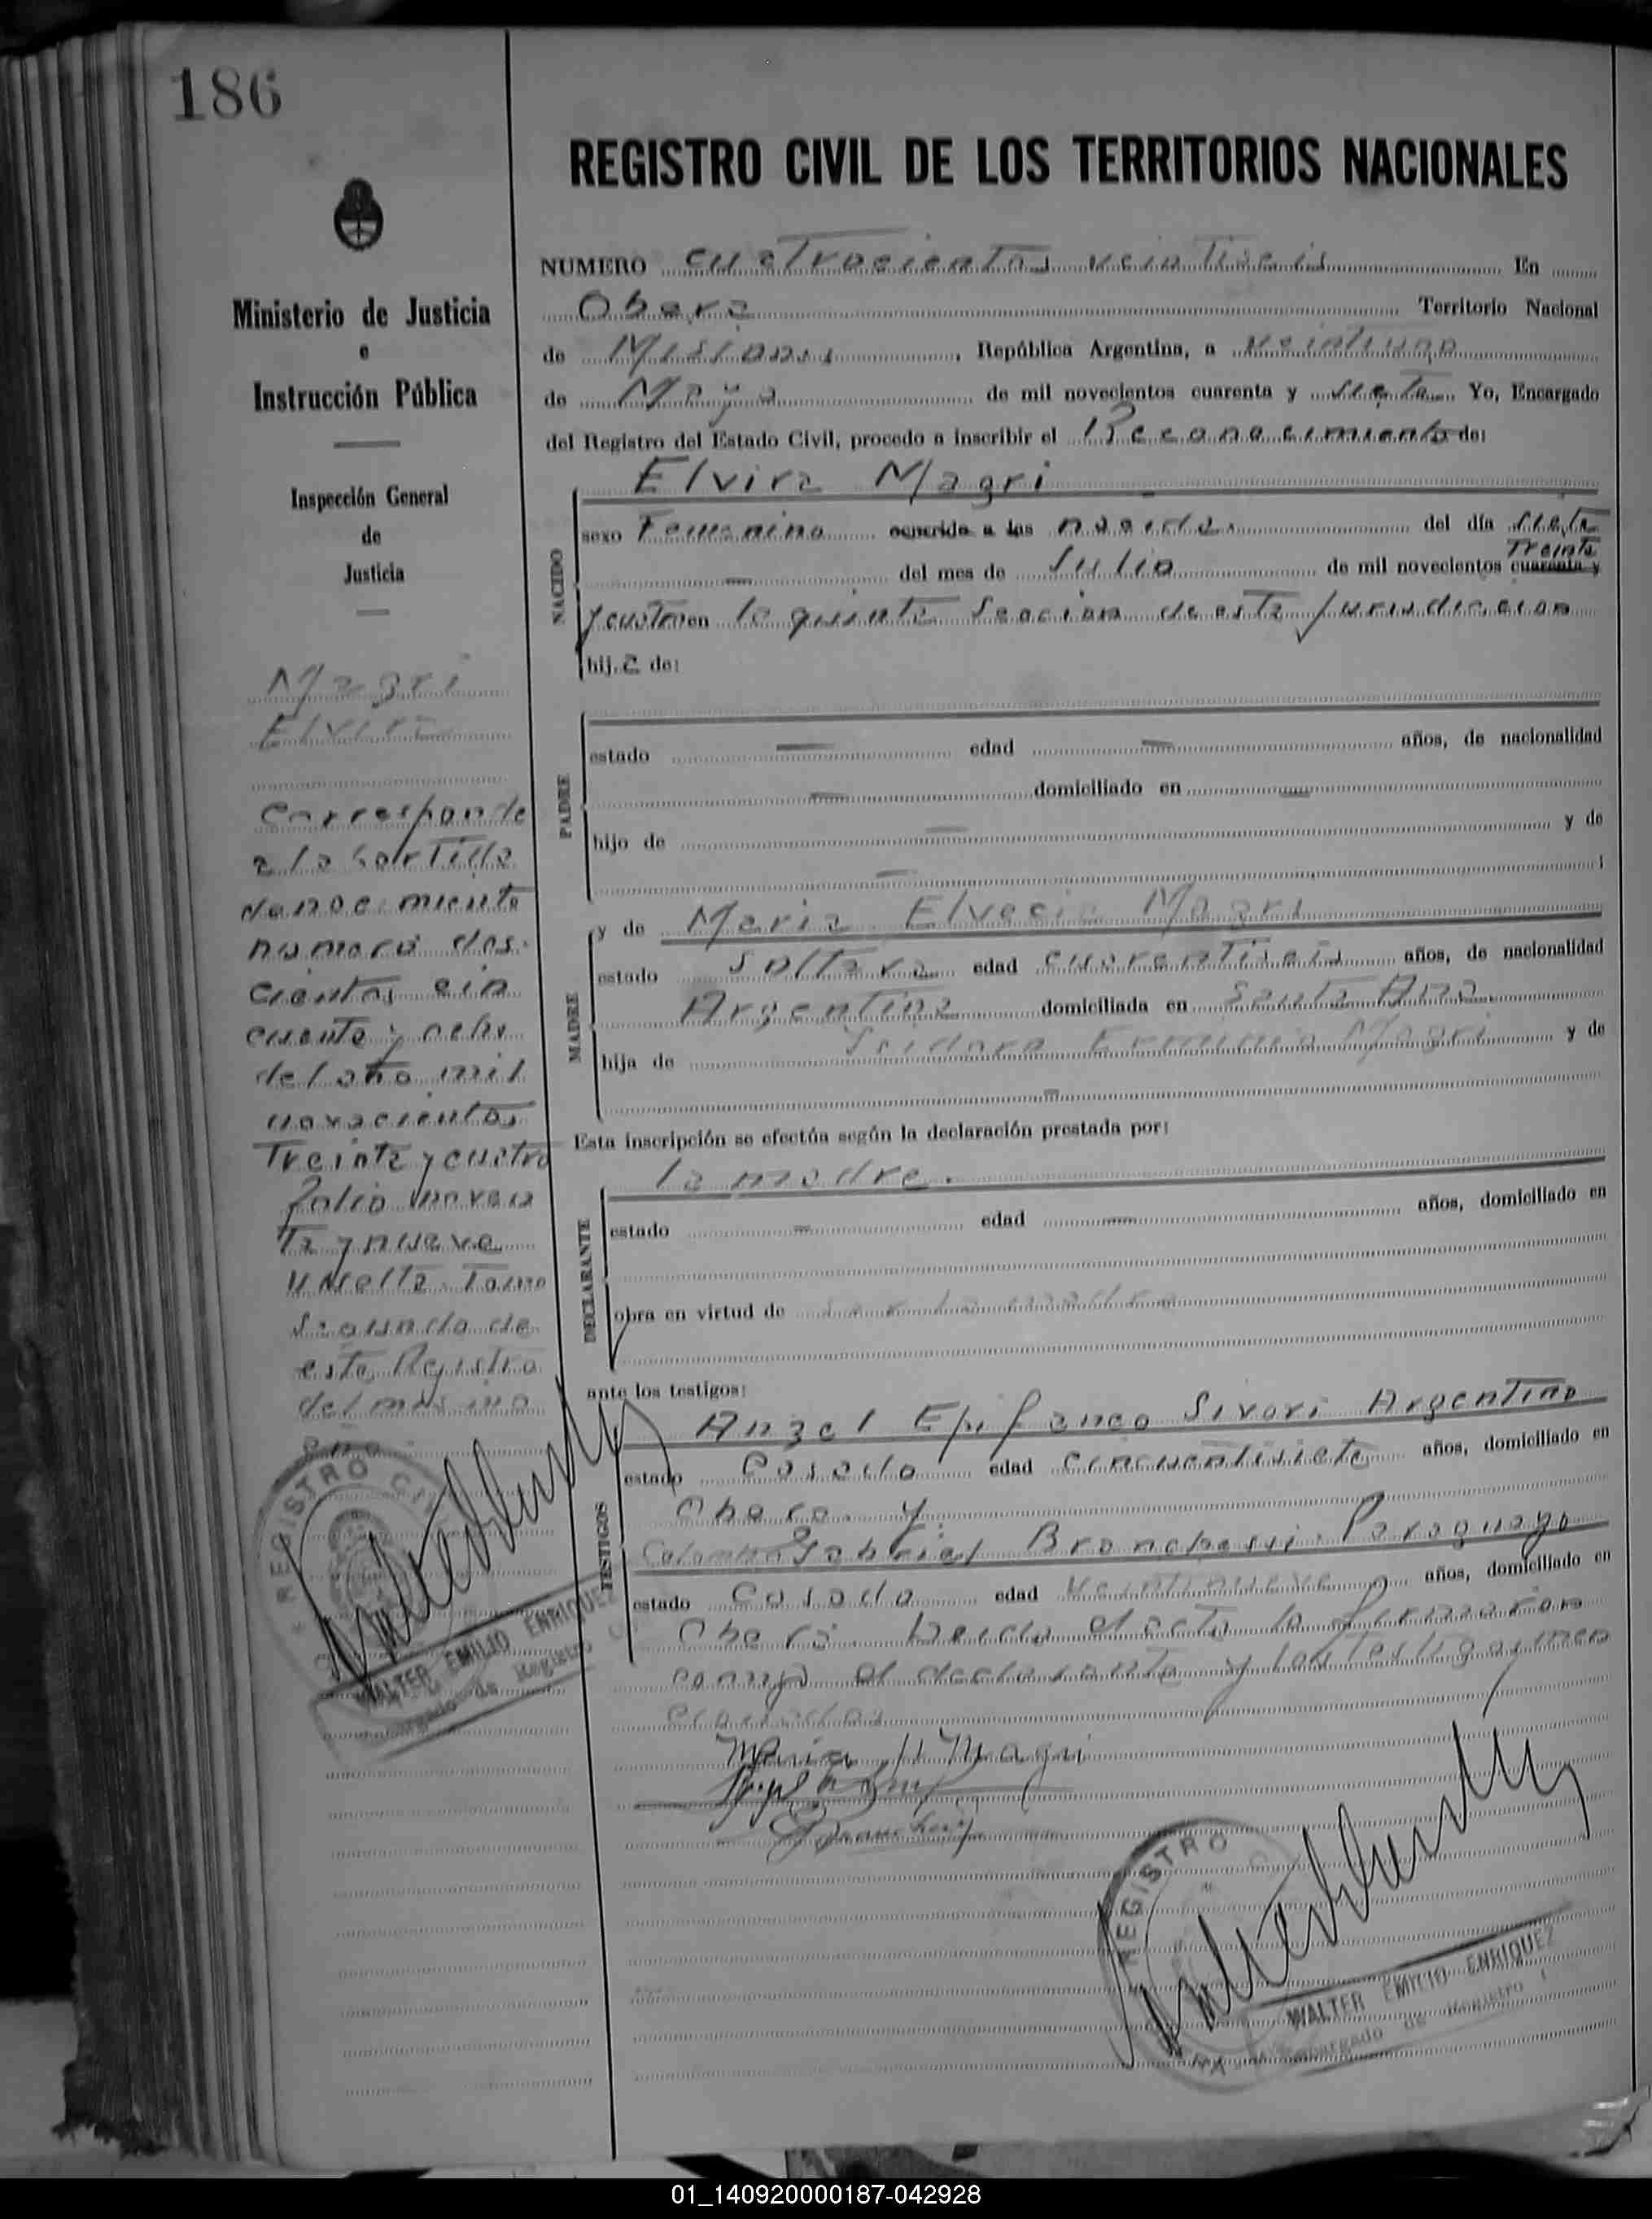 186
REGISTRO CIVIL DE LOS TERRITORIOS NACIONALES
Ministerio de Justicia
e
Instrucción Pública
Inspección General
de
Justicia
Magri
Elvira
Corresponde
a la partida
de nacimiento
numero dos-
cientos cin
cuenta y ocho
del año mil
novecientos
Treinta y cuatro
folio noven
ta y nueve
vuelta Tomo
Segundo de
este Registro
del mismo
año
REGISTRO CI
WALTER EMILIO ENRIQUEZ
Encargado de Registro C
NUMERO cuatrocientos veintiseis En
Obera Territorio Nacional
de Misiones, República Argentina, a veintiuno
de Mayo de mil novecientos cuarenta y siete Yo, Encargado
del Registro del Estado Civil, procedo a inscribir el Reconocimiento de:
Elvira Magri
NACIDO
sexo Femenino ocurrido a las nacida del día siete
Treinta
del mes de Julio de mil novecientos cuarenta y
y cuatro en la quinta Seccion de esta jurisdiccion
hij a de:
PADRE
estado — edad — años, de nacionalidad
— domiciliado en —
hijo de — y de
— ;
MADRE
y de Maria Elvecia Magri
estado Soltera edad cuarentiseis años, de nacionalidad
Argentina domiciliada en Santa Ana
hija de Isidora Erminia Magri y de
Esta inscripción se efectúa según la declaración prestada por:
la madre.
DECLARANTE
estado — edad — años, domiciliado en
obra en virtud de ser la madre
ante los testigos:
TESTIGOS
Angel Epifaneo Sivori Argentino
estado Casado edad cincuentisiete años, domiciliado en
Obera y
Colombo Gabriel Branchessi Paraguayo
estado Casado edad veintinueve años, domiciliado en
Obera Leida el acta la firmaron
conmigo el declarante y los testigos men
cionados
Maria Magri
REGISTRO
WALTER EMILIO ENRIQUEZ
Encargado de Registro
01_140920000187-042928